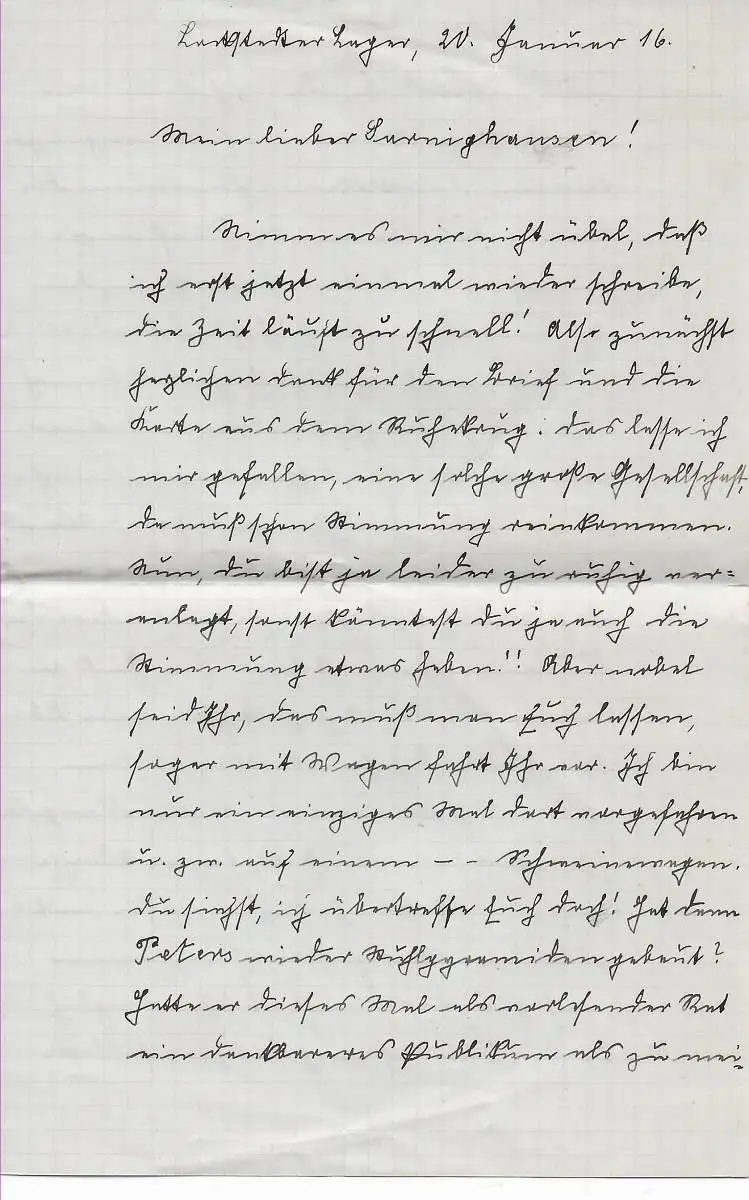 Lockstedter Lager, 20. Januar 16.
Mein lieber Sarnighausen!
Nimm es mir nicht übel, daß
ich erst jetzt einmal wieder schreibe,
die Zeit läuft zu schnell! Also zunächst
herzlichen Dank für den Brief und die
Karte aus dem Ruhekrug. Das lasse ich
mir gefallen, eine solche große Gesellschaft,
da muß schon Stimmung reinkommen.
Nun, du bist ja leider zu ruhig ver=
anlagt, sonst könntest du ja auch die
Stimmung etwas heben!! Aber nobel
seid Ihr, das muß man Euch lassen,
sogar mit Wagen fahrt Ihr vor. Ich bin
nur ein einziges Mal dort vorgefahren
u. zw. auf einem – – Schweinewagen.
Du siehst, ich übertreffe Euch doch! Hat denn
Peters wieder Stuhlpyramiden gebaut?
Hatte er dieses Mal als vorlesender Rat
ein dankbareres Publikum als zu mei=